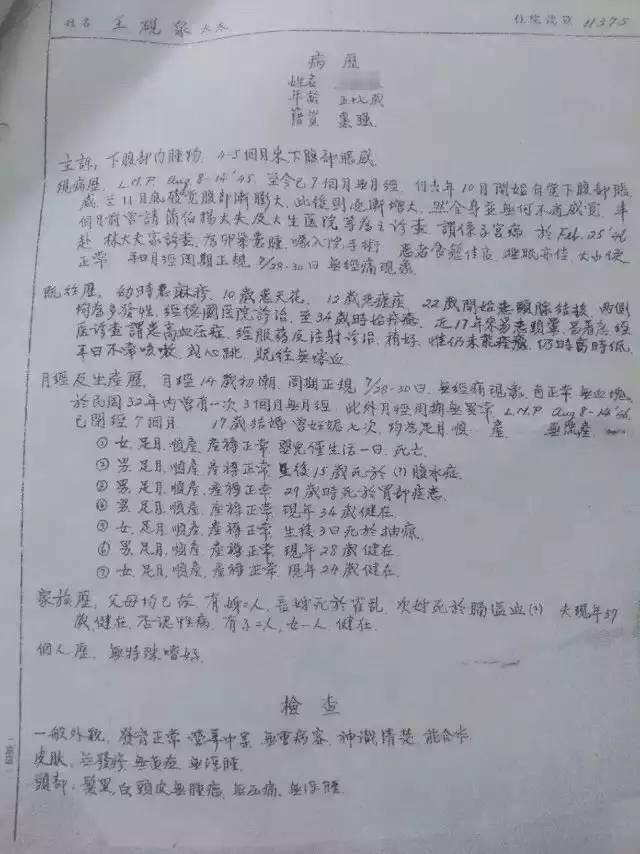 姓名 王硯泉太太 住院號頭 11375
病歷
姓名
年齡 五十七歲
籍貫 棗強
主訴, 下腹部內腫物. 4-5個月來下腹部脹感
現病歷, L.M.P. Aug 8-14 '45. 至今已7個月無月經. 自去年10月開始自覺下腹部脹
感 至11月底發覺腹部漸膨大, 此後則逐漸增大, 然全身並無何不適感覺. 數
個月前曾請 大夫及大生醫院等為之診查 謂係子宮病 於Feb. 25 '46
赴 林大夫家診查, 為卵巢囊腫, 囑入院手術 患者食慾佳良, 睡眠亦佳 大小便
正常 月經周期正規 7/28-30日 無經痛現象
既往歷, 幼時患麻疹, 10歲患天花, 12歲患瘧疾, 22歲開始患頸腺結核, 兩側
均為多發性, 經德國醫院診治, 至34歲時始痊癒. 近17年來易患頭暈,
應診查謂患高血压症, 經服葯及注射診治, 稍好, 惟仍未能痊癒, 仍時高時低,
平日不常咳嗽 心跳, 既往無咯血.
月經及生產歷, 月經14歲初潮, 周期正規 7/28-30日, 無經痛現象, 色正常 無血塊,
於民国32年内曾有一次3個月無月經 此外月經周期無異常 L.M.P. Aug 8-14 '45
已閉經7個月 17歲結婚 曾妊娠七次, 均為足月順產 無流產
① 女, 足月, 順產, 產褥正常 嬰兒僅生活一日, 死亡
② 男, 足月, 順產, 產褥正常 生後15歲死於(?)腹水症.
③ 男, 足月, 順產, 產褥正常 29歲時死於胃部疾患
④ 男, 足月, 順產, 產褥正常 現年34歲健在.
⑤ 女, 足月, 順產, 產褥正常 生後3日死於抽瘋.
⑥ 男, 足月, 順產, 產褥正常 現年28歲健在.
⑦ 女, 足月, 順產, 產褥正常 現年24歲健在.
家族歷, 父母均已故 有姊二人, 長姊死於霍乱 次姊死於腦溢血(?) 夫現年59
歲健在, 否認性病, 有子二人, 女一人 健在.
個人歷, 無特殊嗜好.
檢查
一般外觀, 發育正常 營養中等, 無重病容, 神識清楚 能合作.
皮膚, 無發疹 無黃疸 無浮腫.
頭部, 髮黑白 頭皮無腫瘍, 無压痛, 無浮腫.